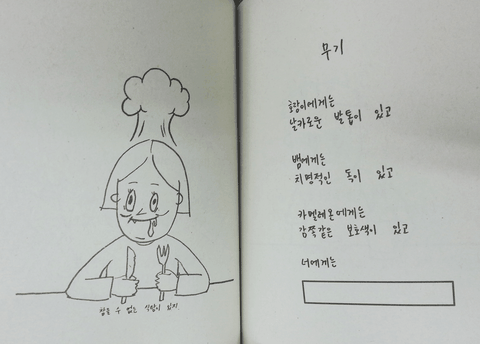 참을 수 없는 식탐이 있지
무기
호랑이에게는
날카로운 발톱이 있고
뱀에게는
치명적인 독이 있고
카멜레온에게는
감쪽같은 보호색이 있고
너에게는